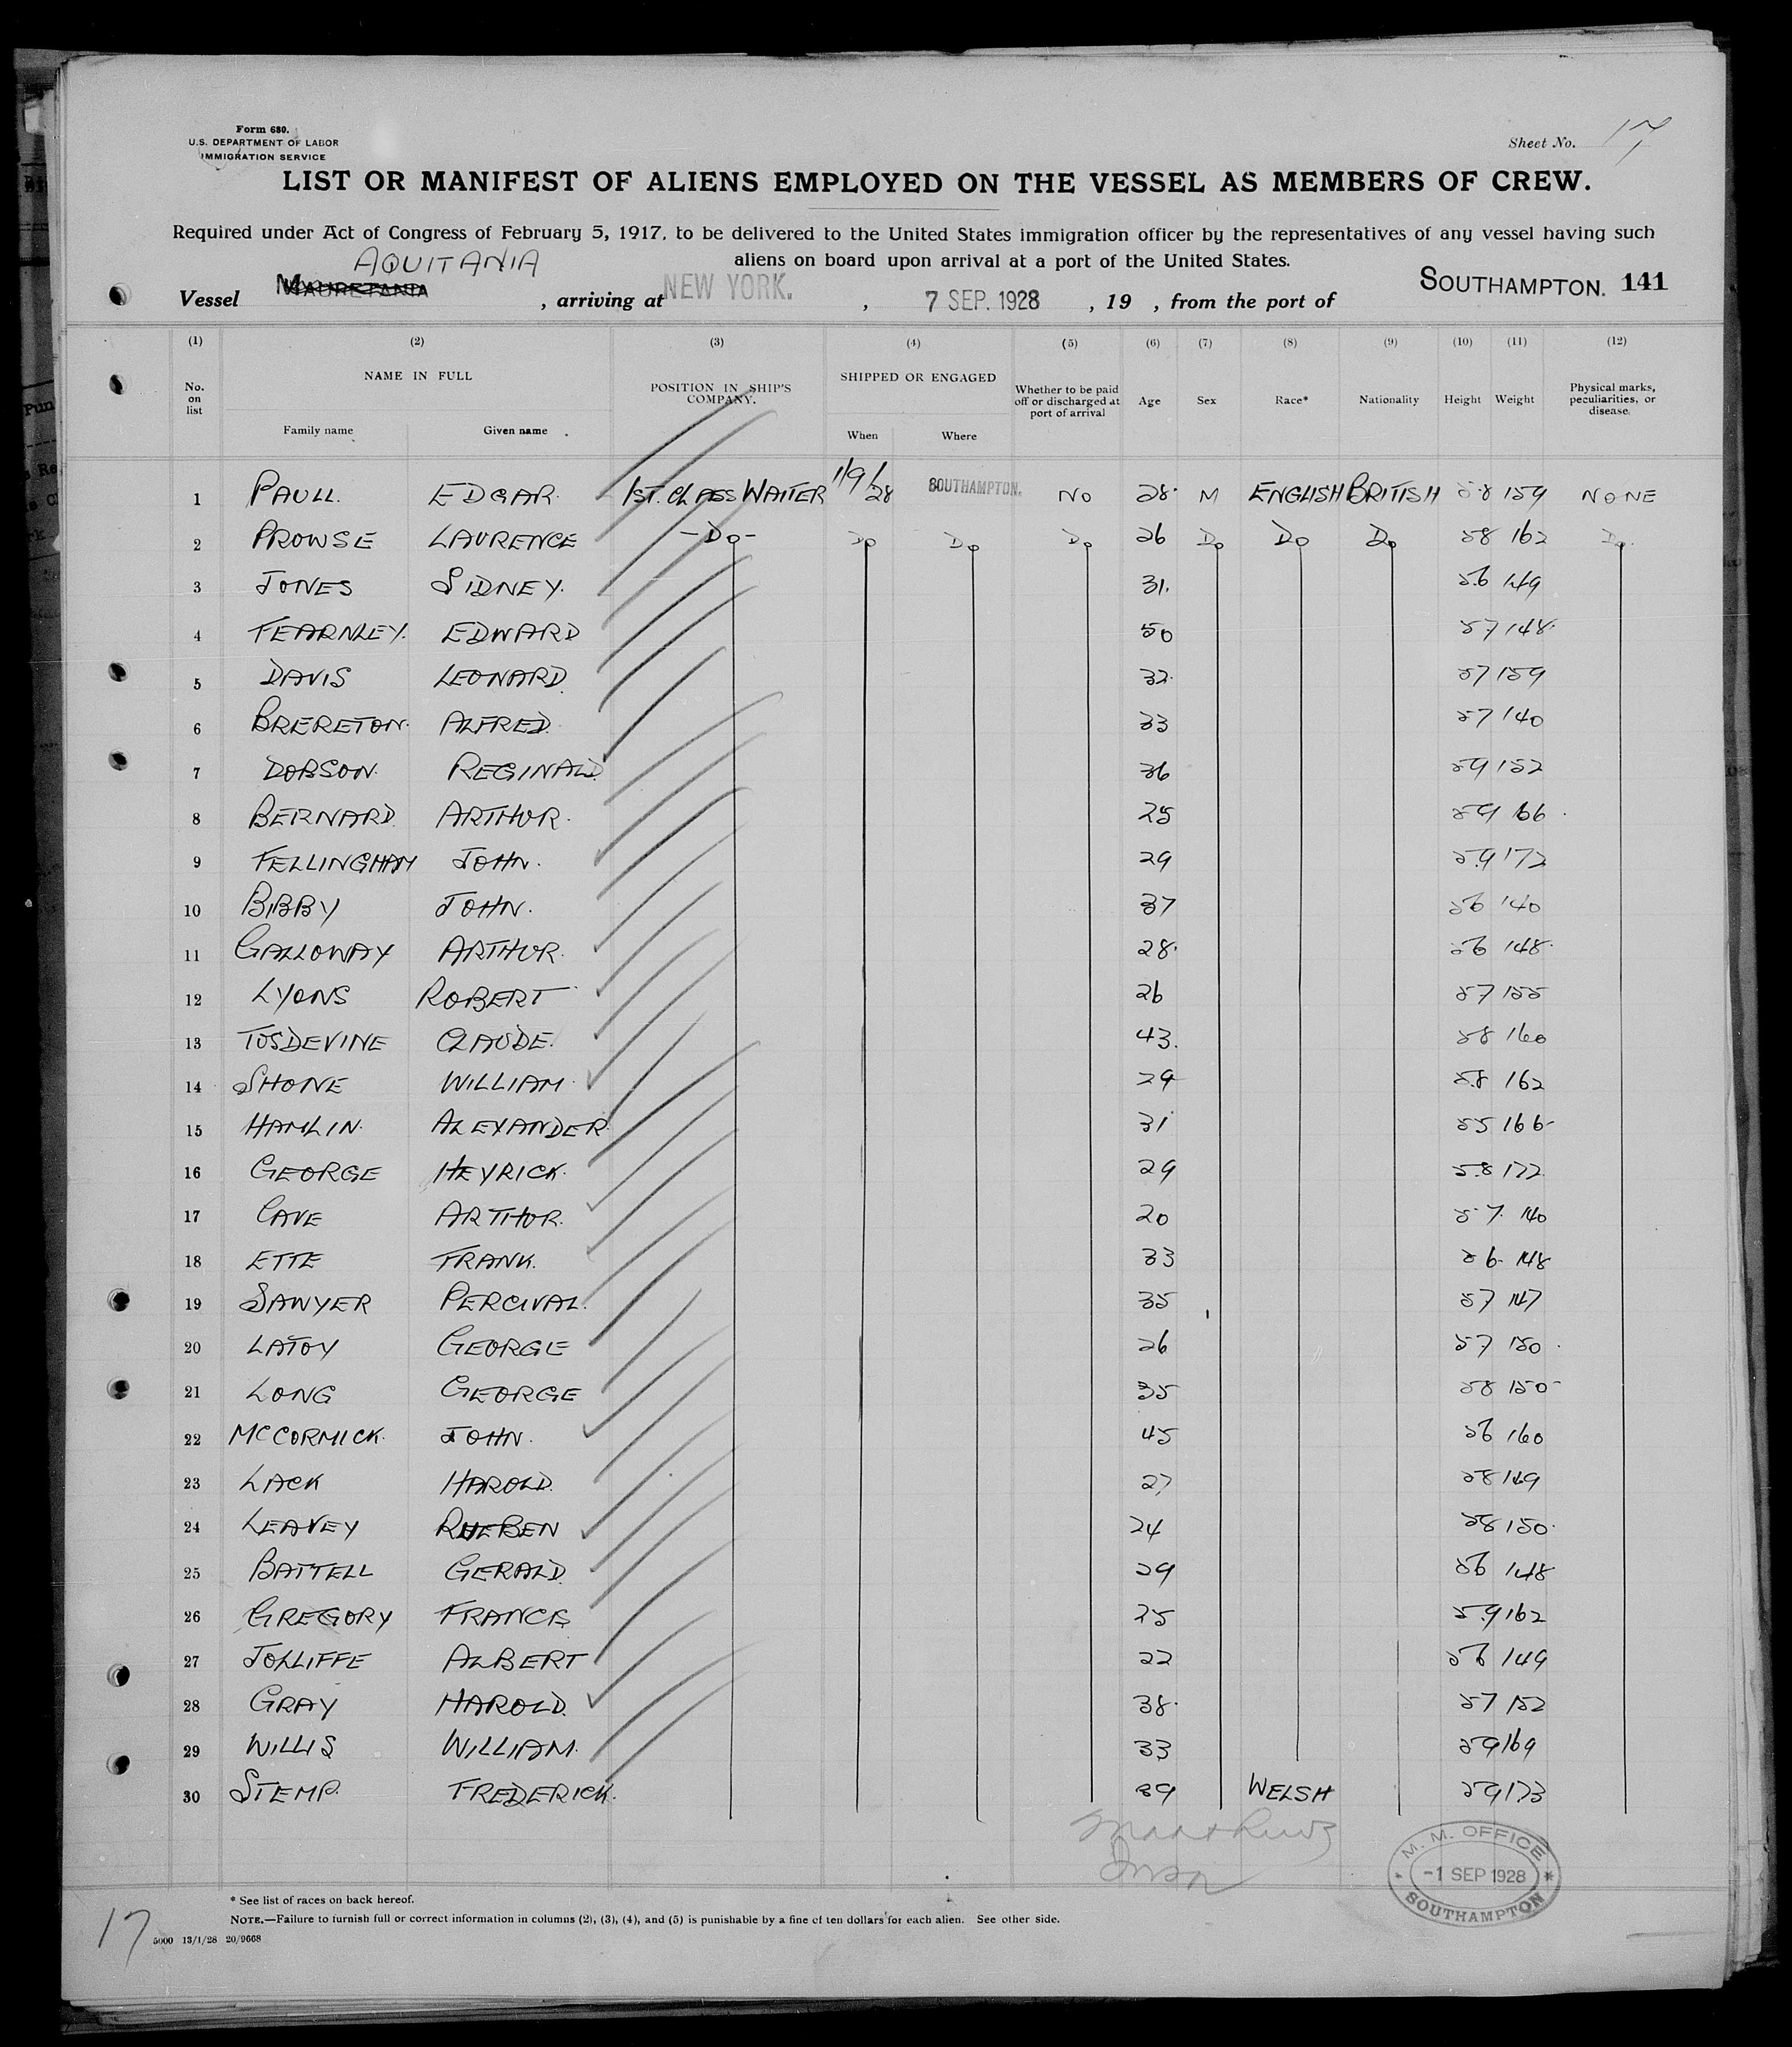 Form 680.
U.S. DEPARTMENT OF LABOR
IMMIGRATION SERVICE
Sheet No. 17
LIST OR MANIFEST OF ALIENS EMPLOYED ON THE VESSEL AS MEMBERS OF CREW.
Required under Act of Congress of February 5, 1917, to be delivered to the United States immigration officer by the representatives of any vessel having such
aliens on board upon arrival at a port of the United States.
AQUITANIA
Vessel MAURETANIA, arriving at NEW YORK., 7 SEP. 1928, 19 , from the port of SOUTHAMPTON. 141
(1) (2) (3) (4) (5) (6) (7) (8) (9) (10) (11) (12)
No. on list NAME IN FULL POSITION IN SHIP'S COMPANY. SHIPPED OR ENGAGED Whether to be paid off or discharged at port of arrival Age Sex Race* Nationality Height Weight Physical marks, peculiarities, or disease.
Family name Given name When Where
1 PAULL. EDGAR. 1ST. CLASS WAITER 1/9/28 SOUTHAMPTON. NO 28. M ENGLISH BRITISH 5.8 159 NONE
2 PROWSE LAURENCE -DO- DO DO DO 26 DO DO DO 58 162 DO.
3 JONES SIDNEY. 31. 5.6 149
4 FEARNLEY. EDWARD 50 57 148.
5 DAVIS LEONARD. 32. 57 159
6 BRERETON. ALFRED. 33 57 140
7 DOBSON. REGINALD. 36 59 152
8 BERNARD. ARTHUR. 25 59 166
9 FELLINGHAM JOHN. 29 5.9 172
10 BIBBY JOHN. 37 56 140
11 GALLOWAY ARTHUR. 28. 56 148.
12 LYONS ROBERT 26 57 155
13 TOSDEVINE CLAUDE. 43. 58 160
14 SHONE WILLIAM. 29 5.8 162
15 HAMLIN. ALEXANDER. 31 55 166-
16 GEORGE HEYRICK. 29 5.8 172
17 CAVE ARTHUR. 20 5.7. 140
18 ETTE FRANK. 33 56. 148
19 SAWYER PERCIVAL. 35 57 147
20 LATOY GEORGE 26 57 150.
21 LONG GEORGE 35 58 150-
22 MCCORMICK. JOHN. 45 56 160
23 LACK HAROLD. 27 58 149
24 LEAVEY RUEBEN 24 58 150.
25 BATTELL GERALD. 29 56 148
26 GREGORY FRANCIS 25 5.9 162
27 JOLLIFFE ALBERT 22 56 149
28 GRAY HAROLD. 38. 57 152
29 WILLIS WILLIAM. 33 59 169
30 STEMP. FREDERICK. 39 WELSH 59 173
M. M. OFFICE
-1 SEP 1928
SOUTHAMPTON
* See list of races on back hereof.
NOTE.—Failure to furnish full or correct information in columns (2), (3), (4), and (5) is punishable by a fine of ten dollars for each alien. See other side.
17
5000 13/1/28 20/9668